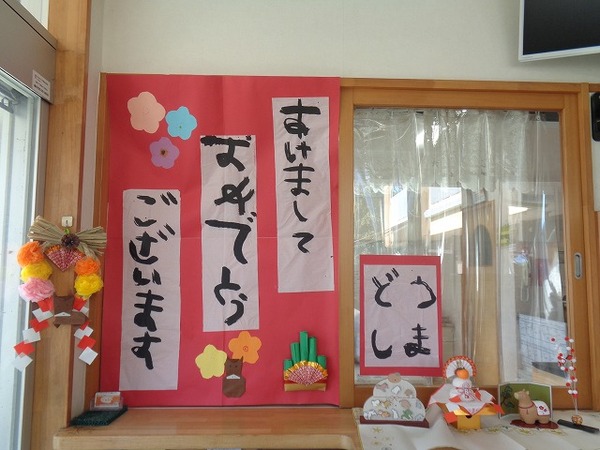 あけまして
おめでとう
ございます
どうしま